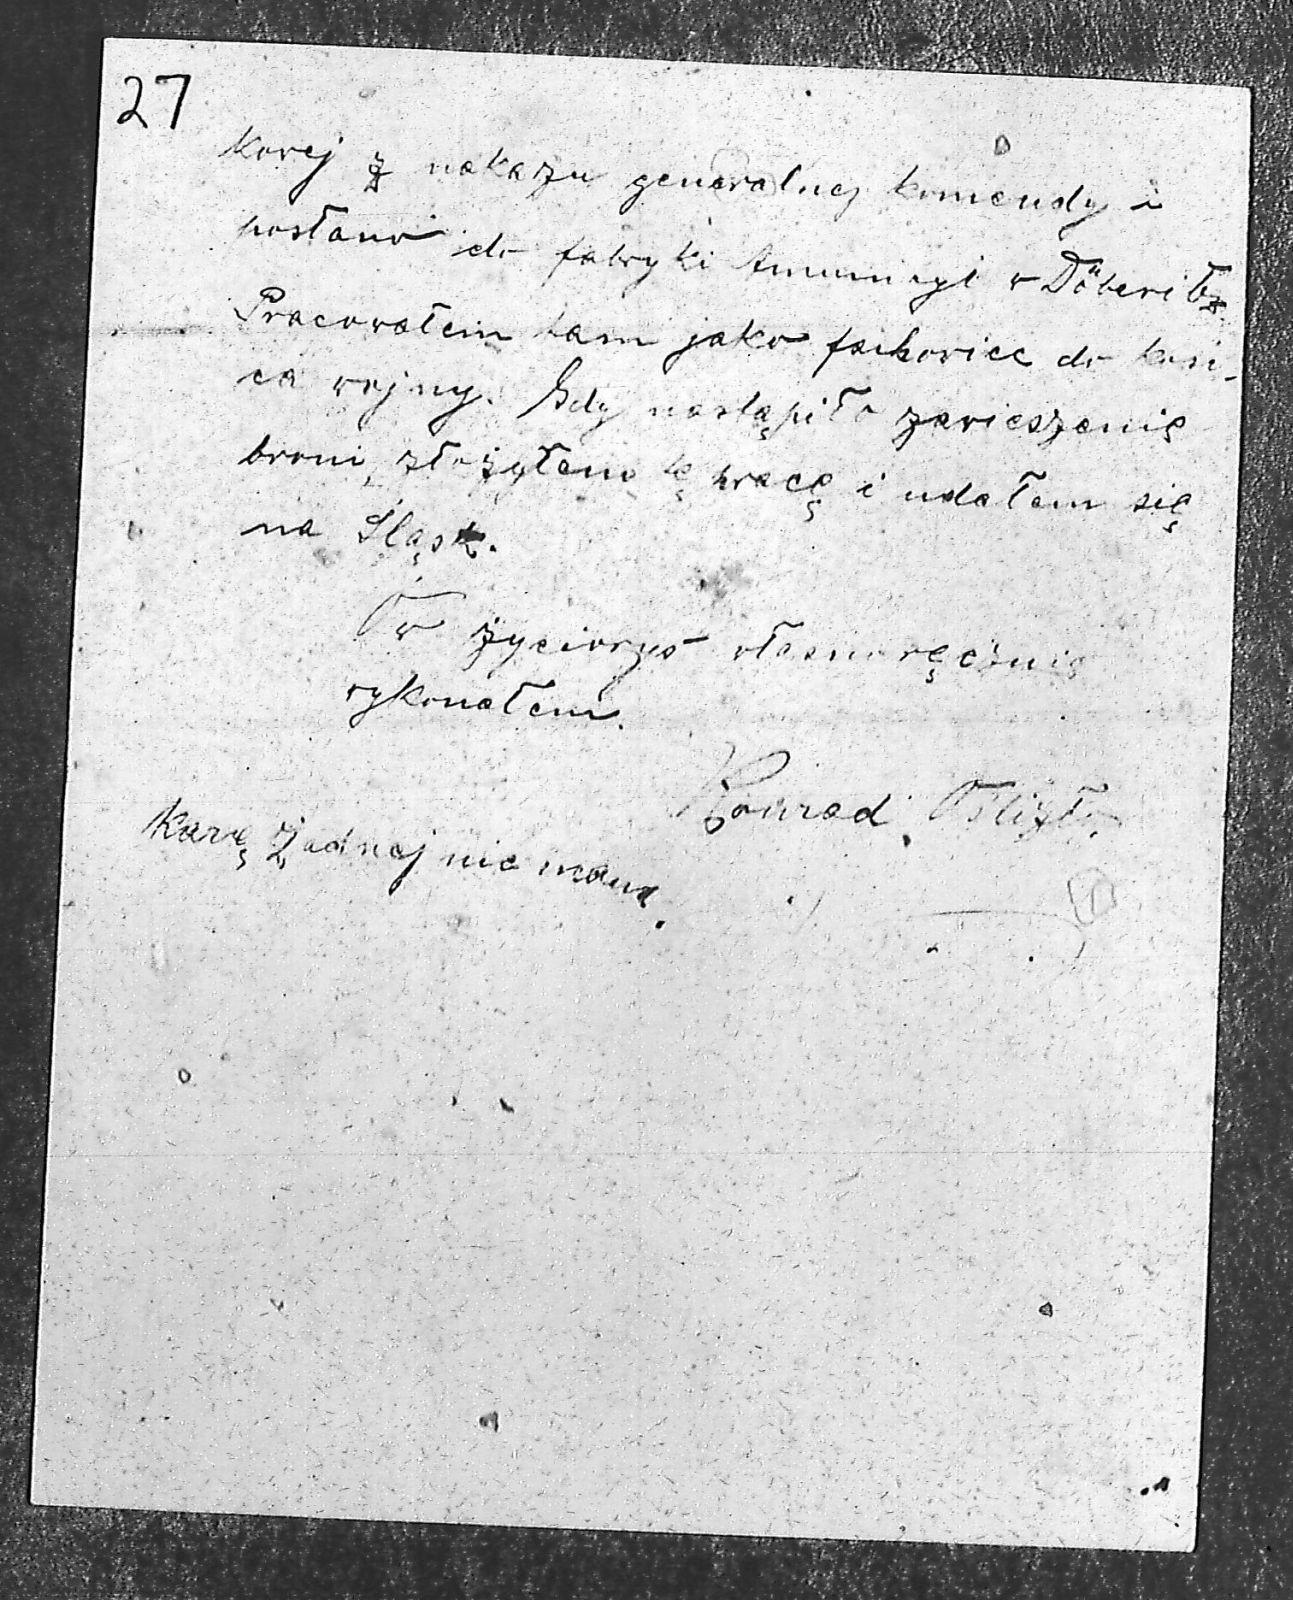 27
kowej z nakazu generalnej komendy i
posłano do fabryki Amunicyi w Döberitz
Pracowałem tam jako fachowiec do koń-
ca wojny. Gdy nastąpiło zawieszenię
broni, złożyłem tę pracę i udałem się
na Śląsk.
Ów życiorys własnoręcznie
wykonałem.
Konrad
Karę żadnej nie mam.